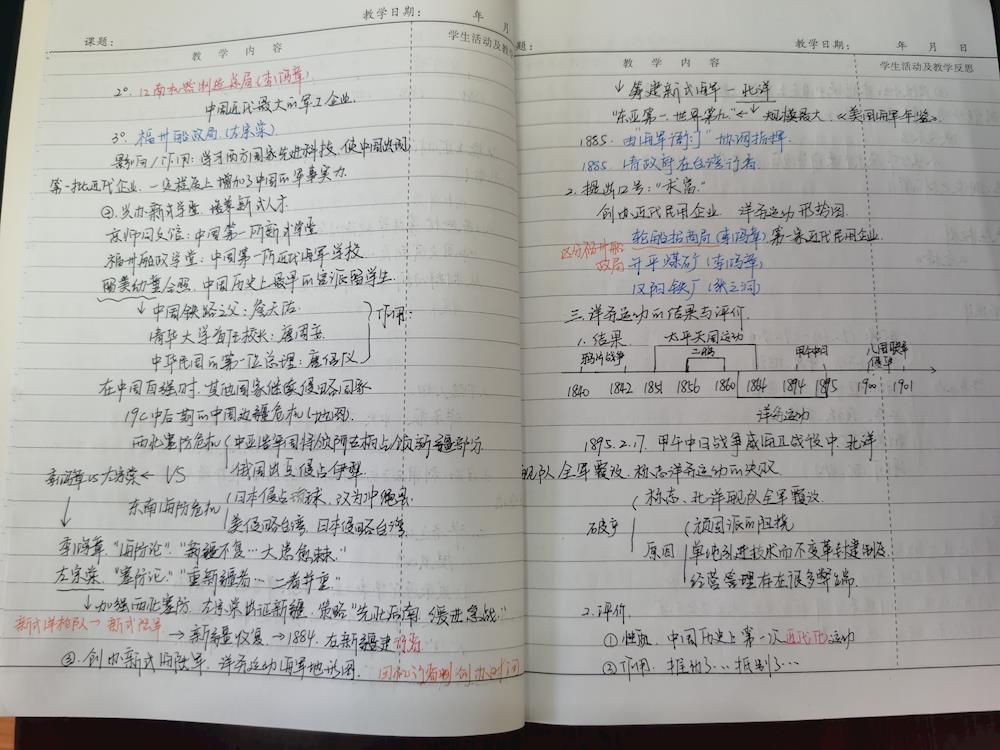 教学日期： 年 月
课题：
教 学 内 容
学生活动及教学
2° 江南机器制造总局(李鸿章)
中国近代最大的军工企业.
3° 福州船政局(左宗棠)
影响/作用: 学习西方国家先进科技, 使中国出现
第一批近代企业. 一定程度上增加了中国的军事实力.
②. 兴办新式学堂. 培养新式人才
京师同文馆: 中国第一所新式学堂
福州船政学堂: 中国第一所近代海军学校
留美幼童合照. 中国历史上最早的官派留学生.
↓ 中国铁路之父: 詹天佑
清华大学首任校长: 唐国安 作用:
中华民国的第一位总理: 唐绍仪
在中国自强时. 其他国家继续侵略国家
19C中后期的中国边疆危机(地图).
西北塞防危机 中亚浩罕国将领阿古柏占领新疆部分
俄国出兵侵占伊犁
李鸿章VS左宗棠← VS
东南海防危机 日本侵占琉球, 改为冲绳县
美侵略台湾. 日本侵略台湾
↓
李鸿章. "海防论". "新疆不复…大患愈棘."
左宗棠. "塞防论." "重新疆者… 二者并重."
↓加强西北塞防. 左宗棠出征新疆. 策略"先北后南. 缓进急战."
新式洋枪队→新式陆军
→新疆收复. →1884. 在新疆建行省
③. 创办新式海陆军. 洋务运动海军地形图.
题：
教学日期： 年 月 日
教 学 内 容
学生活动及教学反思
↓ 筹建新式海军 — 北洋
"东亚第一. 世界第九" ←↓ 规模最大 《美国海军年鉴》
1885. 由"海军衙门" 协调指挥.
1885. 清政府在台湾行省.
2. 提出口号: "求富."
创办近代民用企业. 洋务运动形势图.
轮船招商局(李鸿章). 第一家近代民用企业.
区分福州船
政局
开平煤矿(李鸿章)
汉阳铁厂(张之洞)
三. 洋务运动的结果与评价.
1. 结果.
太平天国运动
鸦片战争 二鸦 甲午中日 八国联军
侵华
1840 1842 1851 1856 1860 1864 1894 1895 1900 1901
洋务运动
1895.2.17. 甲午中日战争威海卫战役中. 北洋
舰队全军覆没. 标志洋务运动的失败
标志. 北洋舰队全军覆没
破产 顽固派的阻挠
原因 单纯引进技术而不变革封建制度
经营管理存在很多弊端.
2. 评价.
①性质. 中国历史上第一次近代化运动
②作用. 推动了… 抵制了…